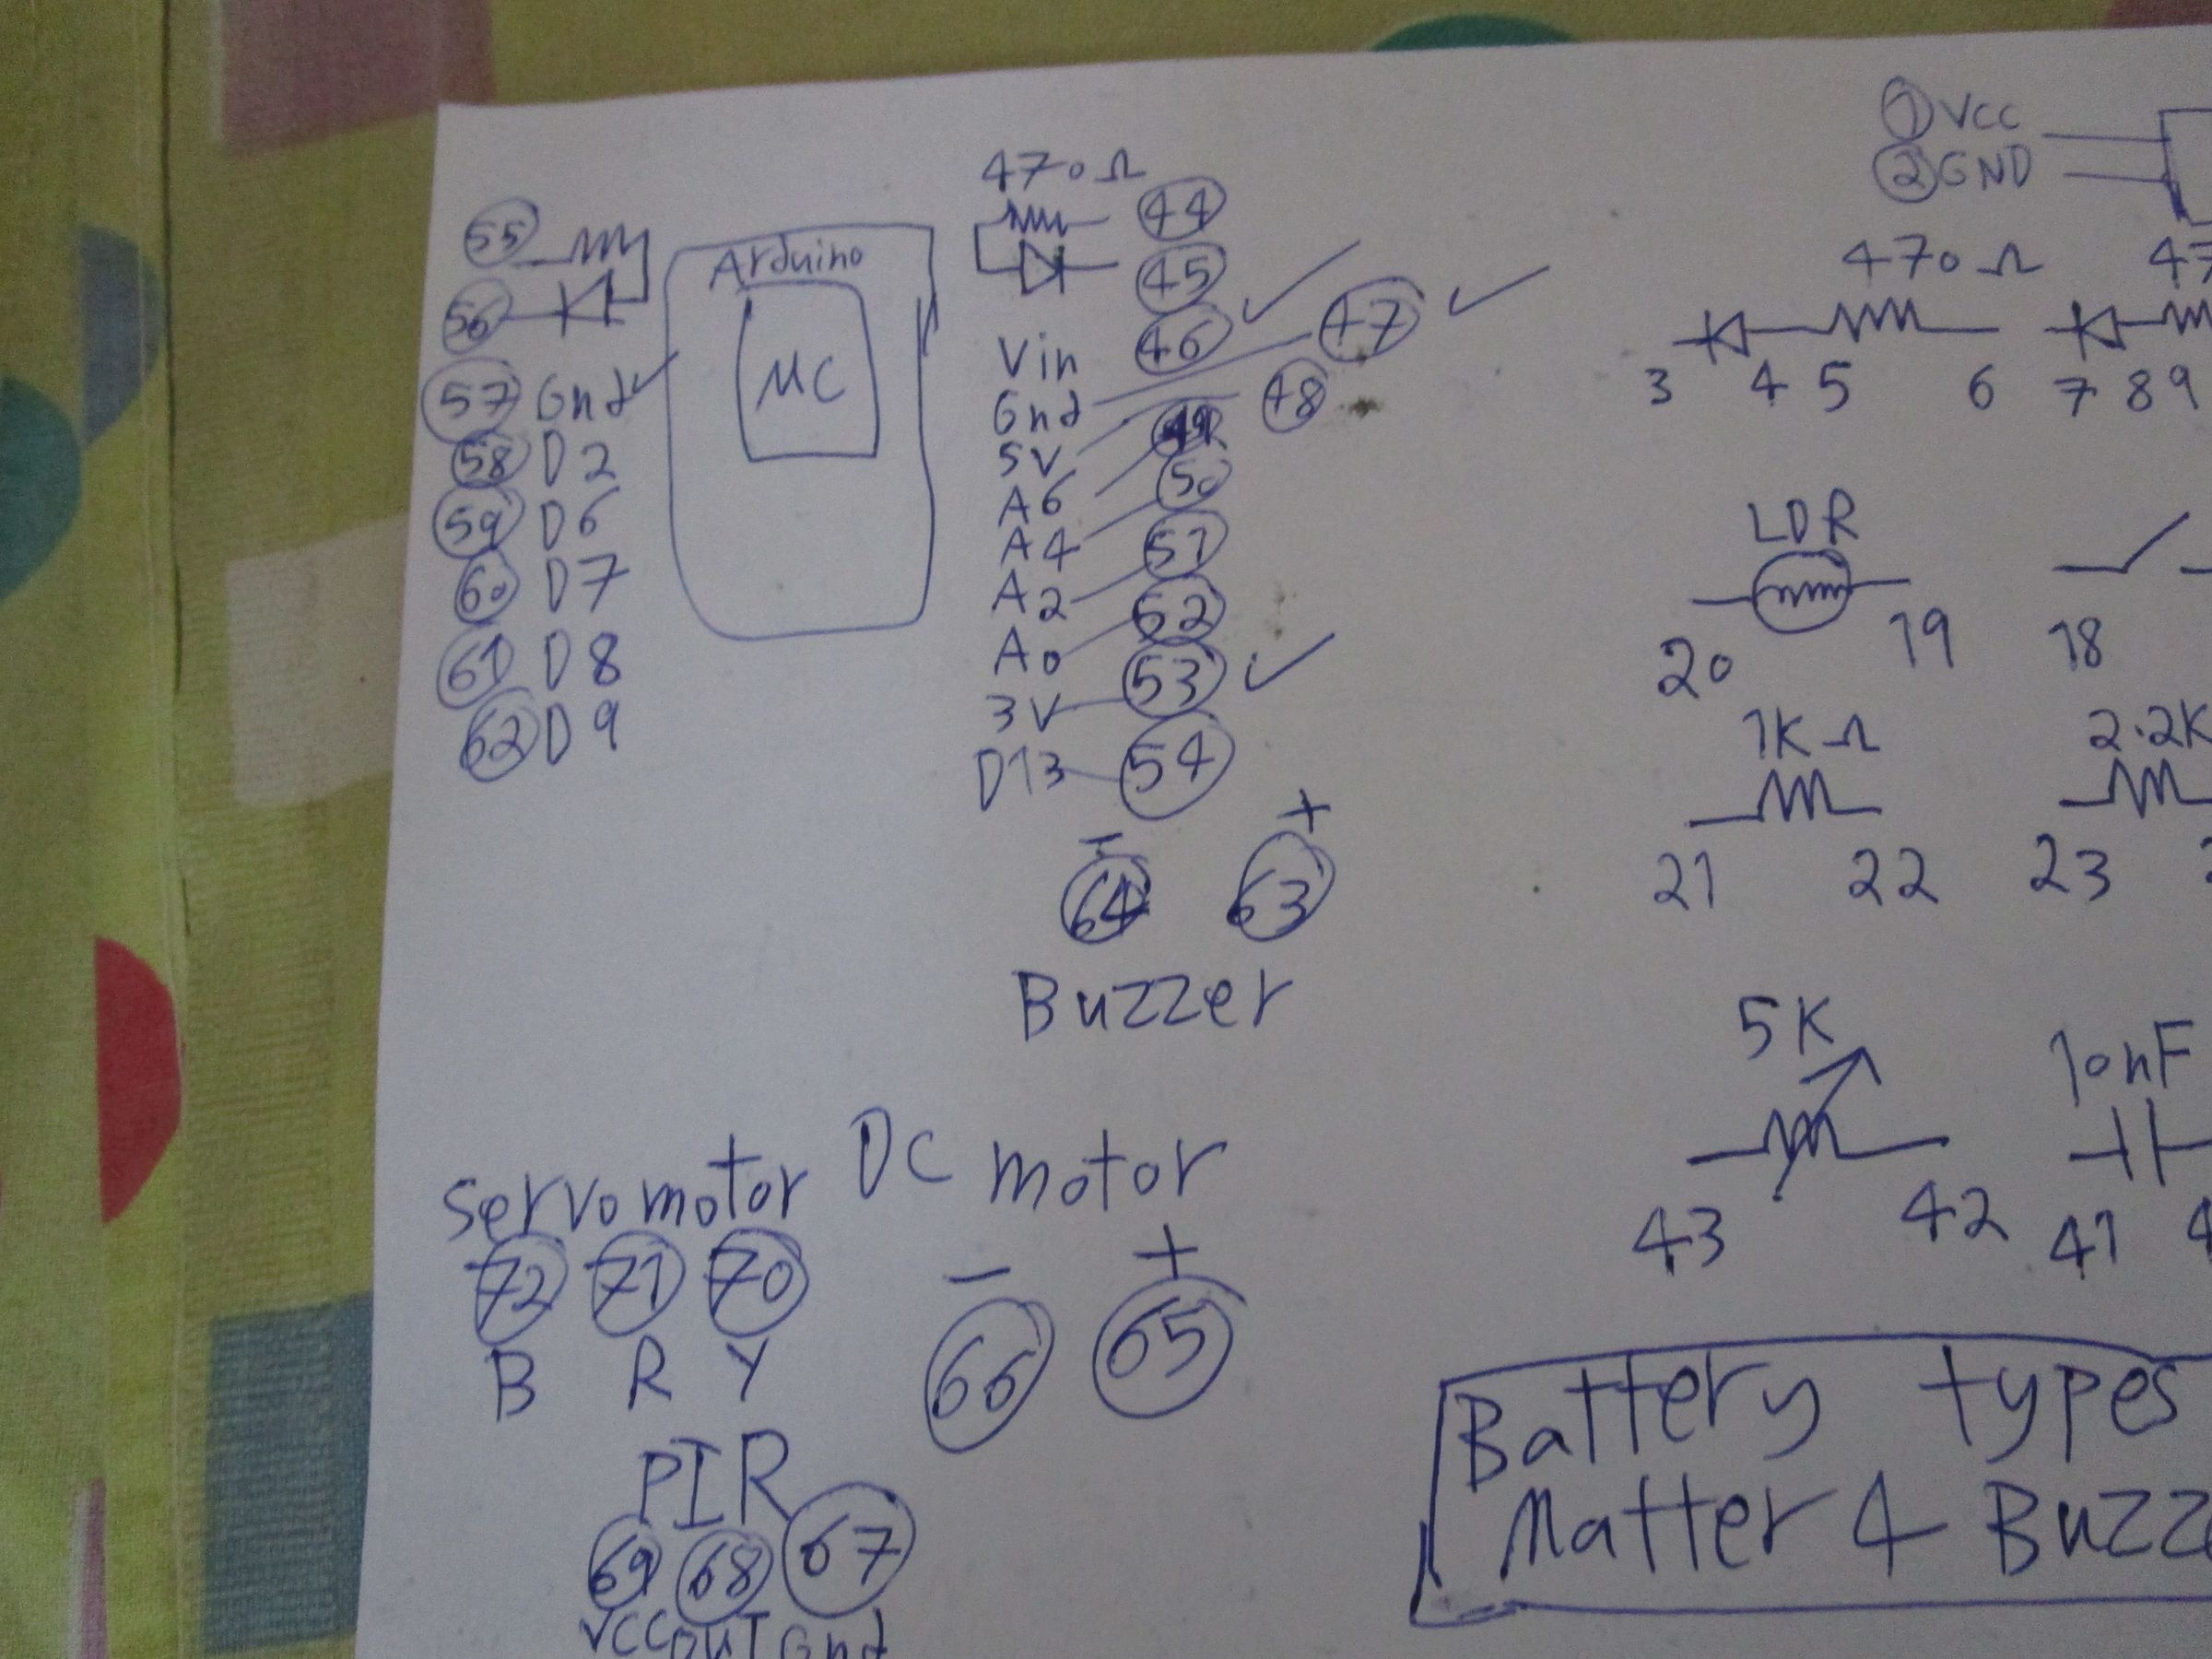 ① VCC
② GND
470 Ω
44
45
55
56
Arduino
MC
Vin 46 ✓
Gnd 47 ✓
5V 48
A6 49
A4 50
A2 51
A0 52
3V 53 ✓
D13 54
57 Gnd ✓
58 D2
59 D6
60 D7
61 D8
62 D9
470 Ω 47
3 4 5 6 7 8 9
LDR
20 19 18
1K Ω 2.2K
21 22 23
- +
64 63
Buzzer
5K 10nF
43 42 41 4
Servo motor DC motor
72 71 70 - +
B R Y 66 65
PIR
69 68 67
VCC OUT Gnd
Battery types
Matter 4 Buzze